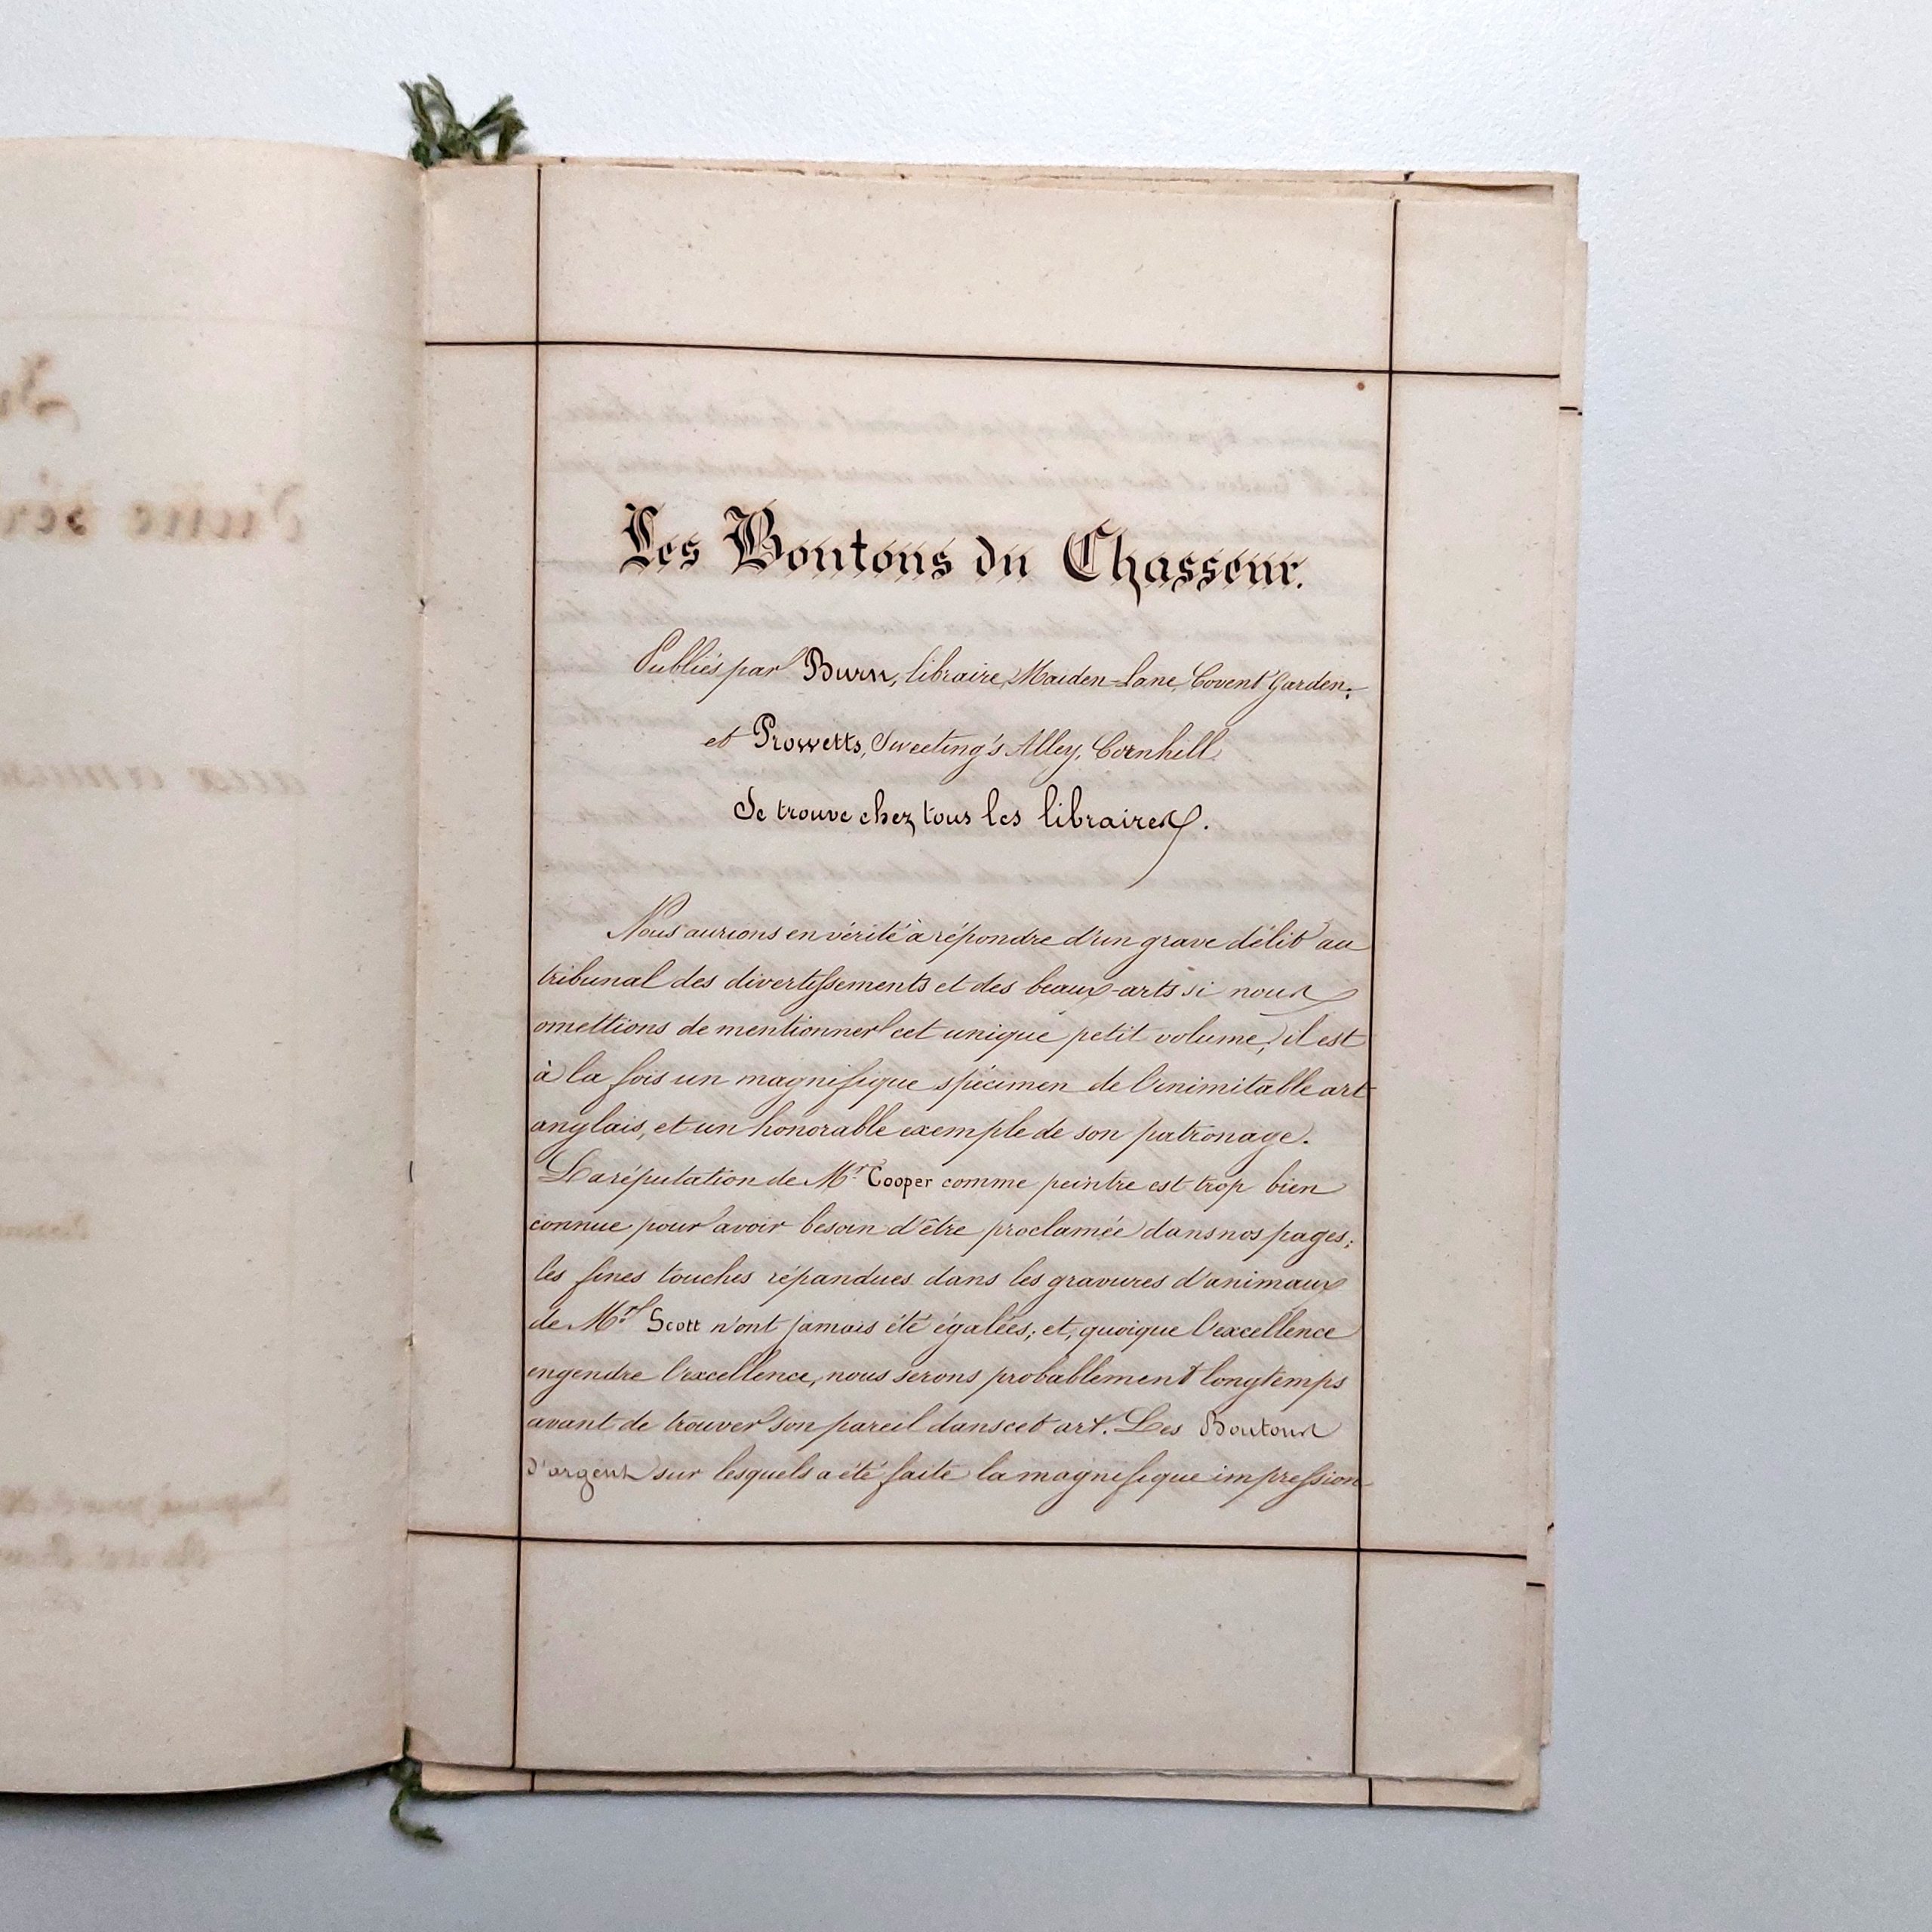 Les Boutons du Chasseur.
Publiés par Burn, libraire, Maiden-Lane, Covent Garden;
et Prowetts, Sweeting's Alley, Cornhill.
Se trouve chez tous les libraires.
Nous aurions en vérité à répondre d'un grave délit au
tribunal des divertissements et des beaux-arts si nous
omettions de mentionner cet unique petit volume; il est
à la fois un magnifique spécimen de l'inimitable art
anglais, et un honorable exemple de son patronage.
La réputation de Mr. Cooper comme peintre est trop bien
connue pour avoir besoin d'être proclamée dans nos pages;
les fines touches répandues dans les gravures d'animaux
de Mr. Scott n'ont jamais été égalées; et, quoique l'excellence
engendre l'excellence, nous serons probablement longtemps
avant de trouver son pareil dans cet art. Les Boutons
d'argent sur lesquels a été faite la magnifique impression